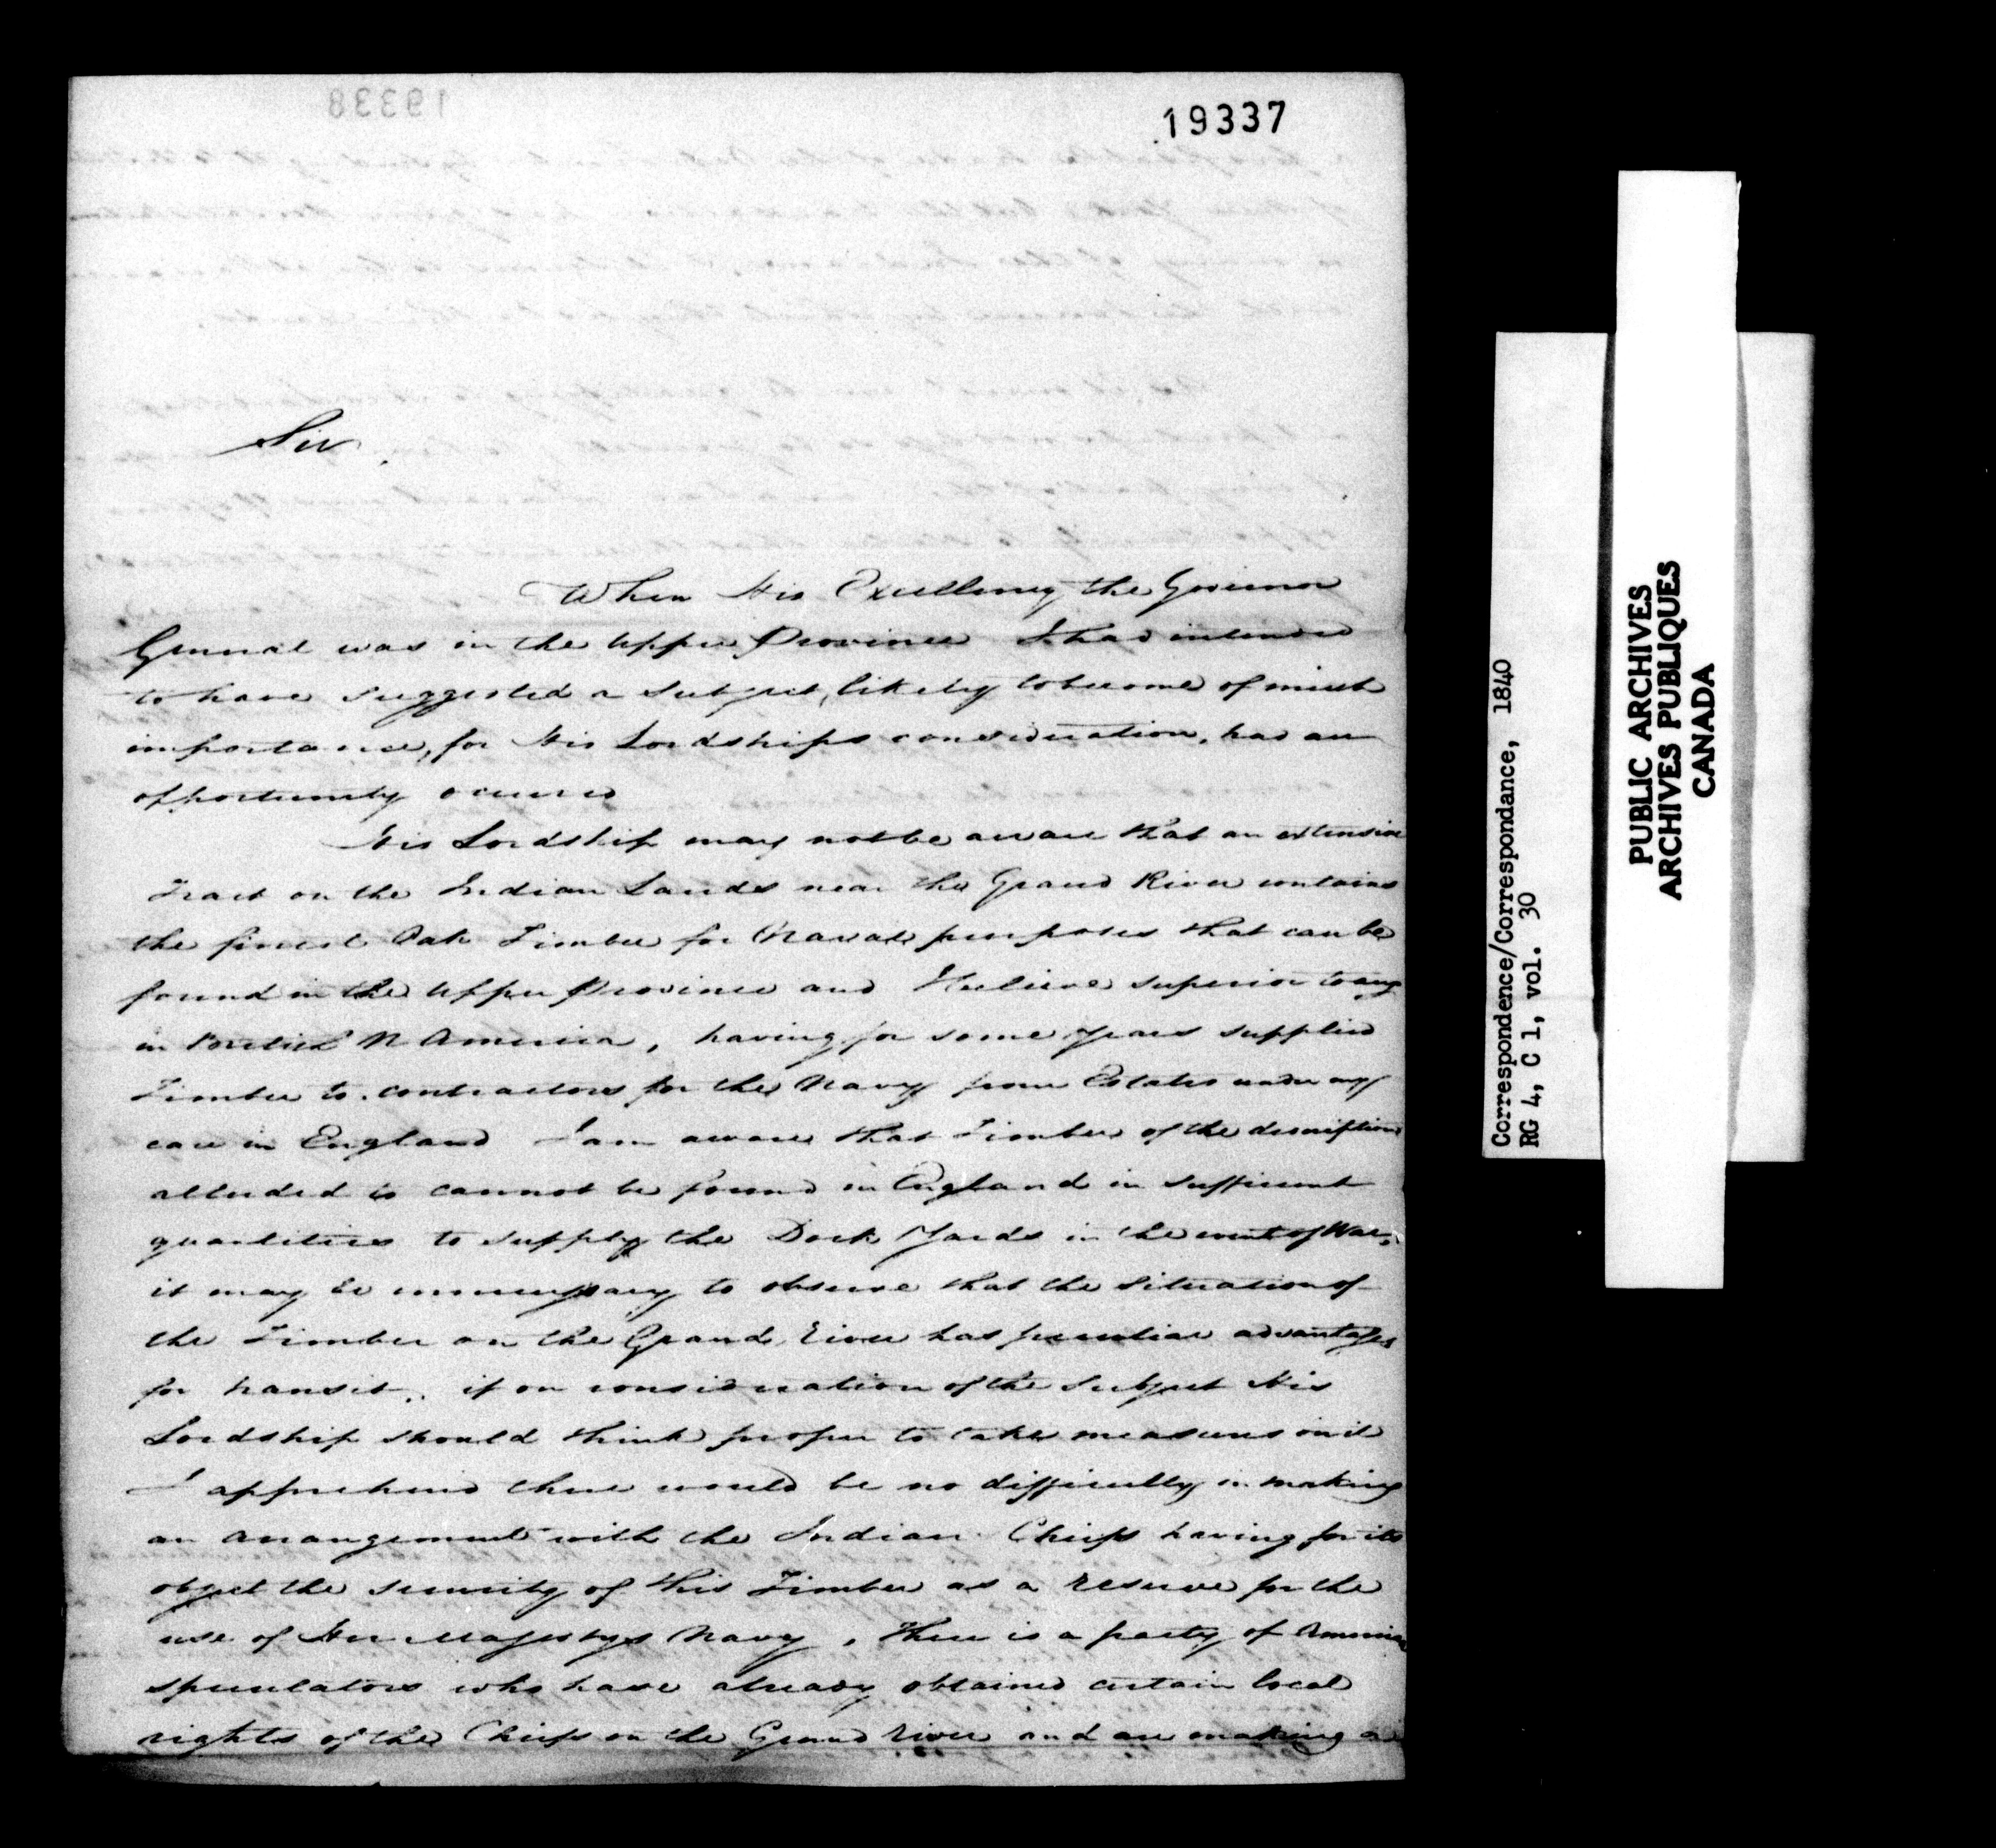 19337
19338
Sir,
When His Excellency the Governor
General was in the Upper Province I had intended
to have suggested a subject, likely to become of much
importance, for His Lordships consideration, had an
opportunity occurred
His Lordship may not be aware that an extensive
Tract on the Indian Lands near the Grand River contains
the finest Oak Timber for Naval purposes that can be
found in the Upper Province and I believe superior to any
in British N America, having for some years supplied
Timber to contractors for the Navy from Estates under my
care in England I am aware that Timber of the description
alluded to cannot be found in England in sufficient
quantities to supply the Dock Yards in the event of War,
it may be unnecessary to observe that the situation of
the Timber on the Grand River has peculiar advantages
for transit, if on consideration of the subject His
Lordship should think proper to take measures on it
I apprehend there would be no difficulty in making
an arrangement with the Indian Chiefs having for its
object the security of this Timber as a reserve for the
use of Her Majestys Navy, There is a party of American
speculators who have already obtained certain local
rights of the Chiefs on the Grand River and are making a
Correspondence/Correspondance, 1840
RG 4, C 1, vol. 30
PUBLIC ARCHIVES
ARCHIVES PUBLIQUES
CANADA